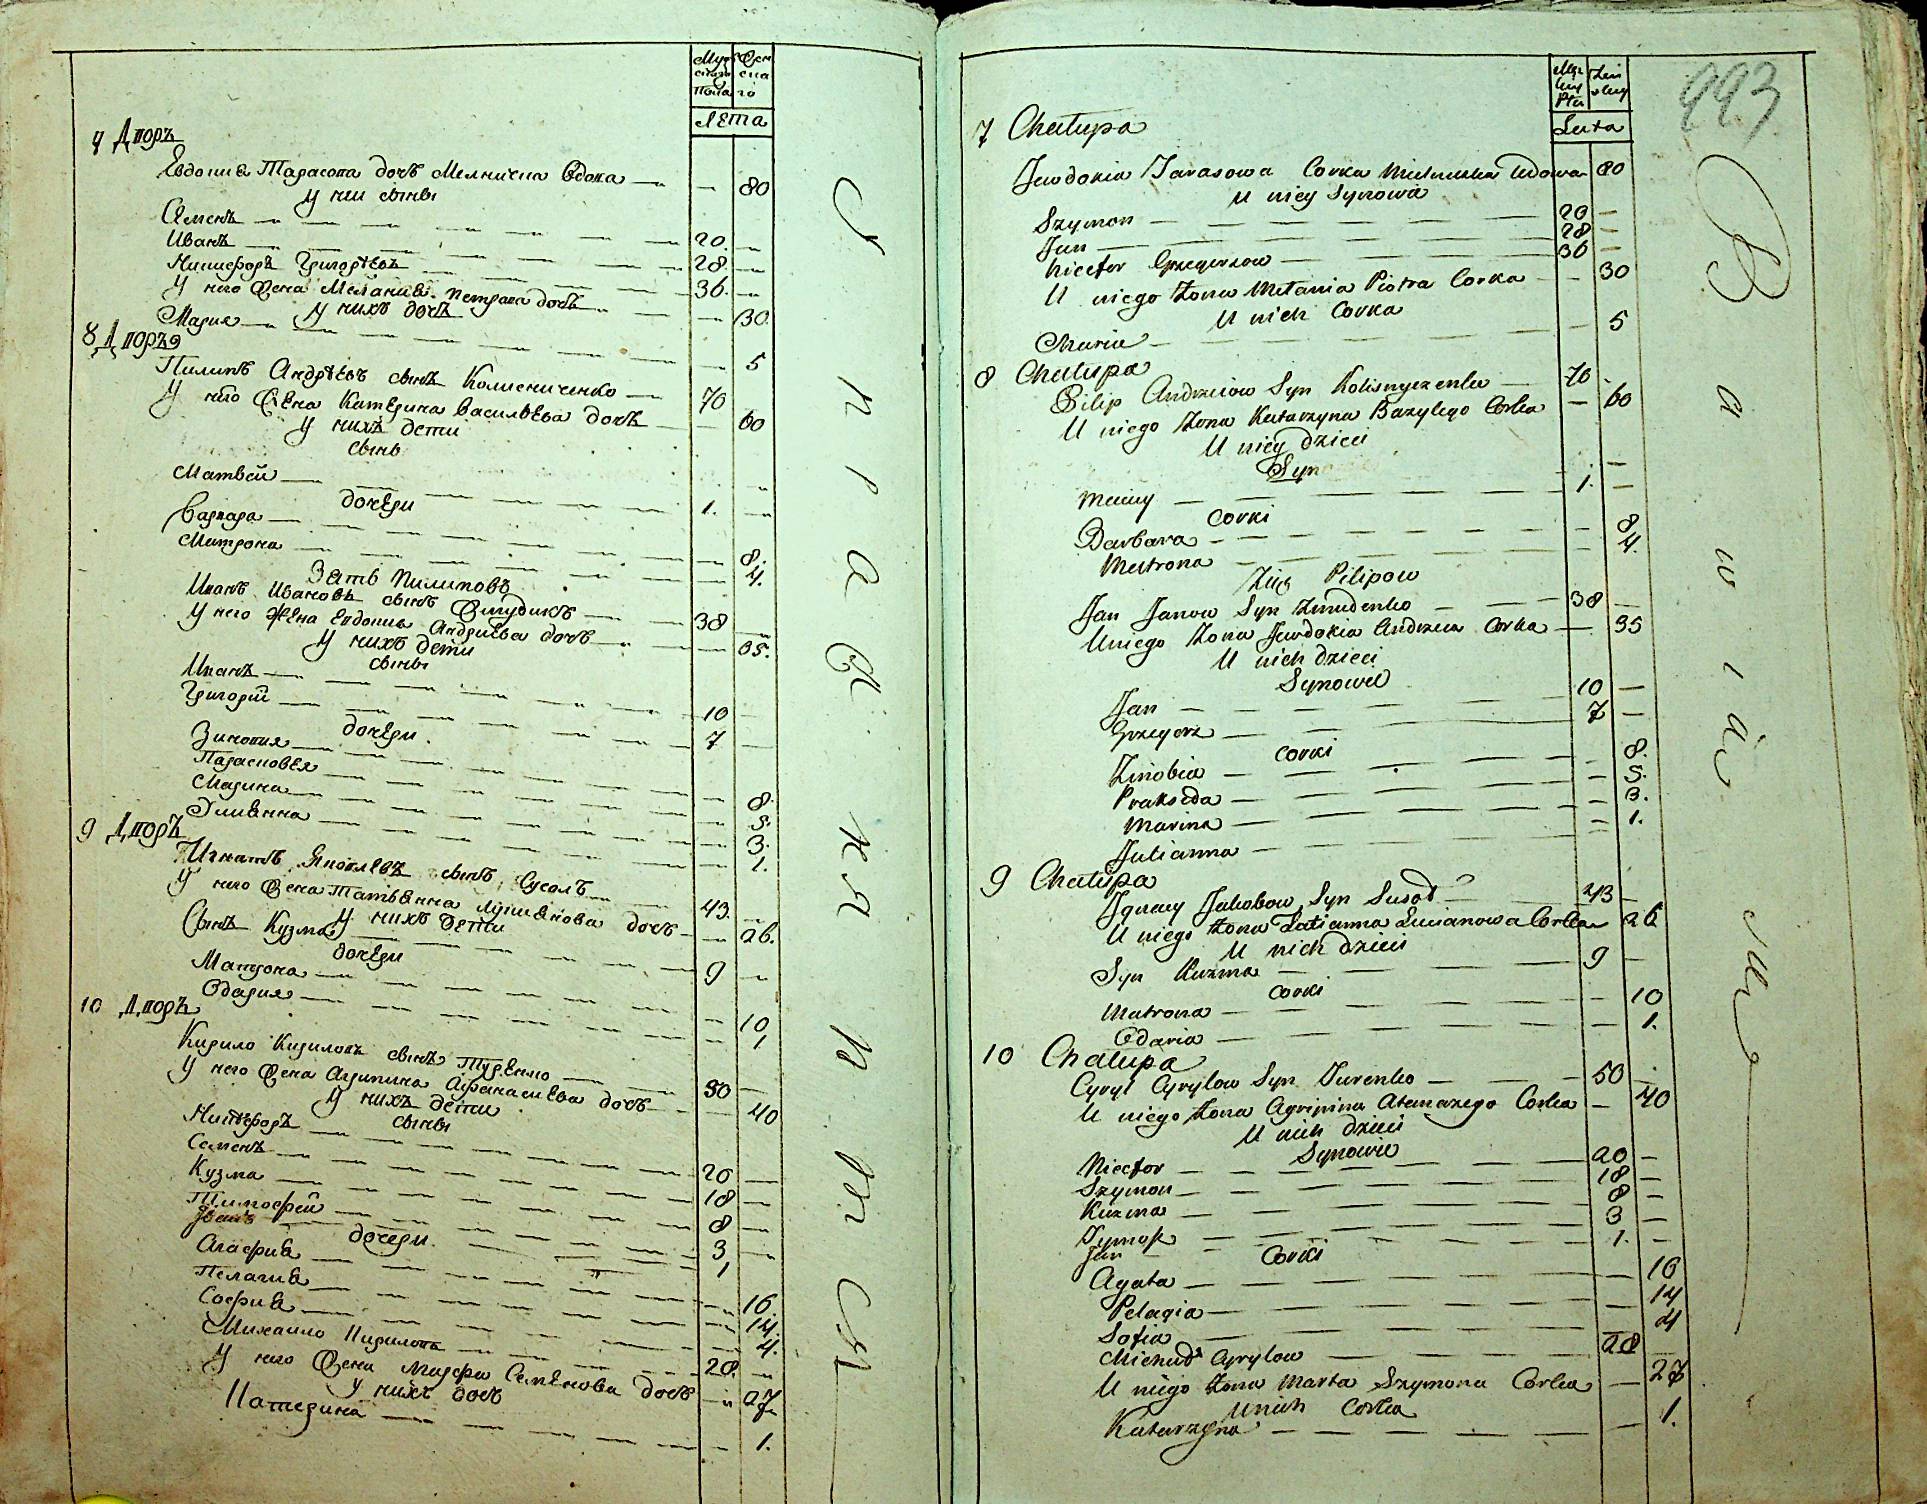 Муж
ческа
Пола
Жен
ска
го
Лѣта
7 Дворъ
Евдокия Тарасова дочь Мелничка вдова — 80
У неи сыны
Семенъ — 20.
Иванъ — 28.
Никифоръ Григорѣевъ — 36.
У него жена Мелания Петрова дочь — 30.
У нихъ дочь
Мария — 5
8 Дворъ
Пилипъ Андрѣевъ сынъ Колисниченко — 70
У него жена Катерина Васильева дочь — 60
У нихъ дети
сынъ
Матвей — 1.
дочери
Варвара — 8.
Матрона — 4.
Зять Пилиповъ
Иванъ Ивановъ сынъ — 38
У него жена Евдокия Андриева дочь — 35.
У нихъ дети
сыны
Иванъ — 10
Григорий — 7
дочери.
Зиновия — 8.
Парасковея — 5.
Марина — 3.
Улианна — 1.
9 Дворъ
Игнатъ Яковлевъ сынъ Сусолъ — 43.
У него жена Татьянна Лукиянова дочь — 26.
У нихъ дети
Сынъ Кузма — 9
дочери
Матрона — 10
Одария — 1
10 Дворъ
Кирило Кириловъ сынъ Туренко — 50
У него жена Агрипина Афанасиева дочь — 40
У нихъ дети
сыны
Никифоръ — 20
Семенъ — 18
Кузма — 8
Тимофей — 3
Иванъ — 1
дочери.
Агафия — 16.
Пелагия — 14.
София — 4.
Михаило Кириловъ — 28.
У него жена Марфа Семенова дочь — 27
У нихъ дочь
Катерина — 1.
С п р а в к а
993
Męz
kiey
Płci
Żeń
skiey
Lata
7 Chałupa
Jewdokia Tarasowa Corka Mielniczka wdowa 80
U niey Synowie
Szymon — 20 —
Jan — 28 —
Nicefor Grzegorzow — 36 —
U niego Zona Mełania Piotra Corka — 30
U nich Corka
Maria — 5
8 Chałupa
Filip Andrzeiow Syn Kolisnyczenko — 70
U niego Zona Katarzyna Bazylego Corka — 60
U niey dzieci
Syn
Maciey — 1. —
Corki
Barbara — 8.
Matrona — 4.
Zięć Pilipow
Jan Janow Syn Zmudenko — 38 —
U niego Zona Jewdokia Andrzeia Corka — 35
U nich dzieci
Synowie
Jan — 10 —
Grzegorz — 7 —
Corki
Zinobia — 8.
Prakseda — 5.
Marina — 3.
Julianna — 1.
9 Chałupa
Ignacy Jakobow Syn Susoł — 43 —
U niego Zona Tatianna Lucianowa Corka — 26
U nich dzieci
Syn Kuzma — 9 —
Corki
Matrona — 10
Odaria — 1.
10 Chałupa
Cyryl Cyrylow Syn Turenko — 50 —
U niego Zona Agripina Atanazego Corka — 40
U nich dzieci
Synowie
Nicefor — 20 —
Szymon — 18 —
Kuzma — 8 —
Tymofi — 3 —
Jan — 1. —
Corki
Agata — 16
Pelagia — 14
Sofia — 4
Michał Cyrylow — 28 —
U niego Zona Marta Szymona Corka — 27
U nich Corka
Katarzyna — 1.